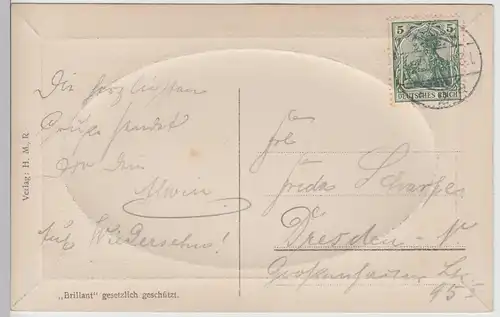 Die herzlichsten
Grüße sendet
Dir Dein
Alwin
Auf Wiedersehn!
Verlag: H. M. R.
„Brillant“ gesetzlich geschützt.
5 5
DEUTSCHES REICH
Frl
Frieda Scharfe
Dresden-N.
Großenhainer Str.